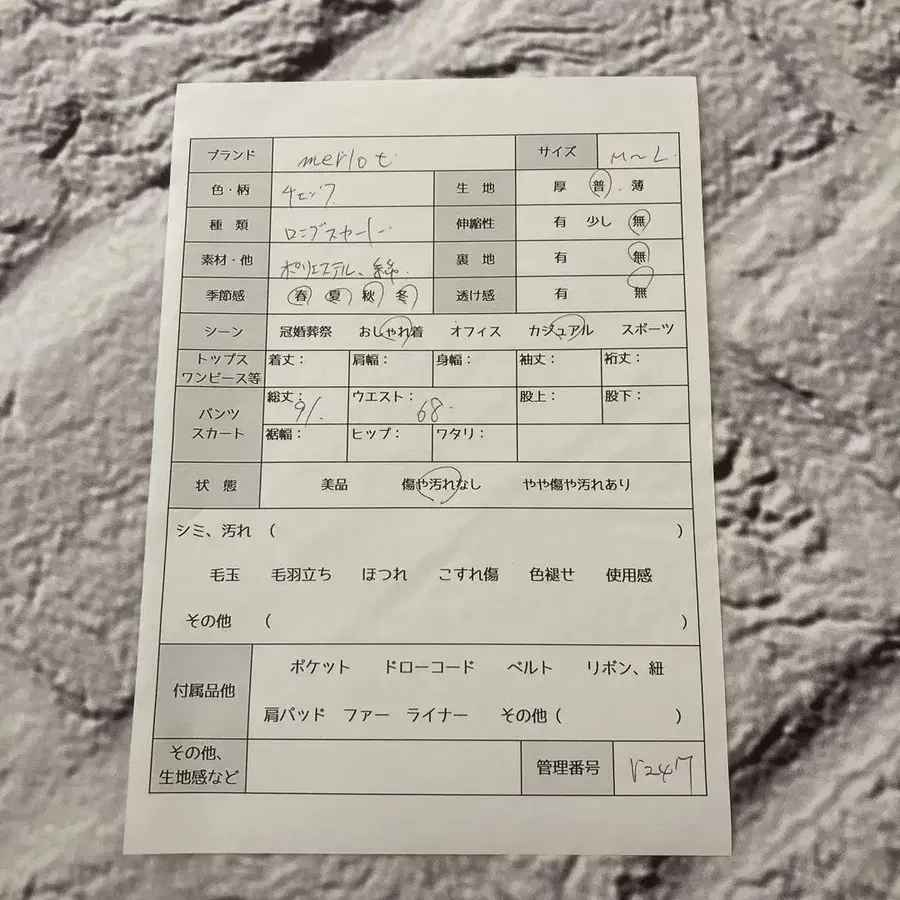 ブランド merlot サイズ M〜L
色・柄 チェック 生地 厚 普 . 薄
種類 ロングスカート 伸縮性 有 少し 無
素材・他 ポリエステル、綿 裏地 有 無
季節感 春 夏 秋 冬 透け感 有 無
シーン 冠婚葬祭 おしゃれ着 オフィス カジュアル スポーツ
トップス ワンピース等 着丈: 肩幅: 身幅: 袖丈: 裄丈:
パンツ スカート 総丈: 91. ウエスト: 68. 股上: 股下:
裾幅: ヒップ: ワタリ:
状態 美品 傷や汚れなし やや傷や汚れあり
シミ、汚れ ( )
毛玉 毛羽立ち ほつれ こすれ傷 色褪せ 使用感
その他 ( )
付属品他 ポケット ドローコード ベルト リボン、紐
肩パッド ファー ライナー その他 ( )
その他、生地感など 管理番号 V247